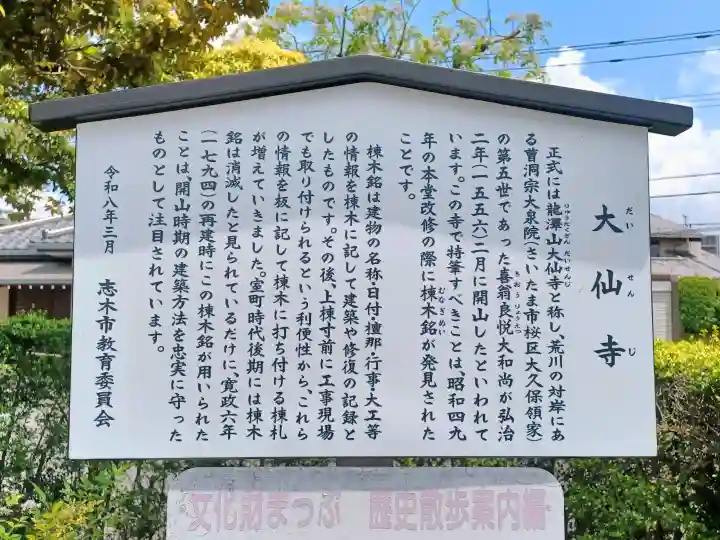 大仙寺
だいせんじ
正式には龍澤山大仙寺と称し、荒川の対岸にあ
りゅうたくざんだいせんじ
る曽洞宗大泉院(さいたま市桜区大久保領家)
の第五世であった喜翁良悦大和尚が弘治
きおうりょうえつ
二年(一五五六)二月に開山したといわれて
います。この寺で特筆すべきことは、昭和四九
年の本堂改修の際に棟木銘が発見された
むなぎめい
ことです。
棟木銘は建物の名称・日付・檀那・行事・大工等
の情報を棟木に記して建築や修復の記録と
したものです。その後、上棟寸前に工事現場
でも取り付けられるという利便性から、これら
の情報を板に記して棟木に打ち付ける棟札
が増えていきました。室町時代後期には棟木
銘は消滅したと見られているだけに、寛政六年
(一七九四)の再建時にこの棟木銘が用いられた
ことは、開山時期の建築方法を忠実に守った
ものとして注目されています。
令和八年三月 志木市教育委員会
文化財まっぷ 歴史散歩案内編